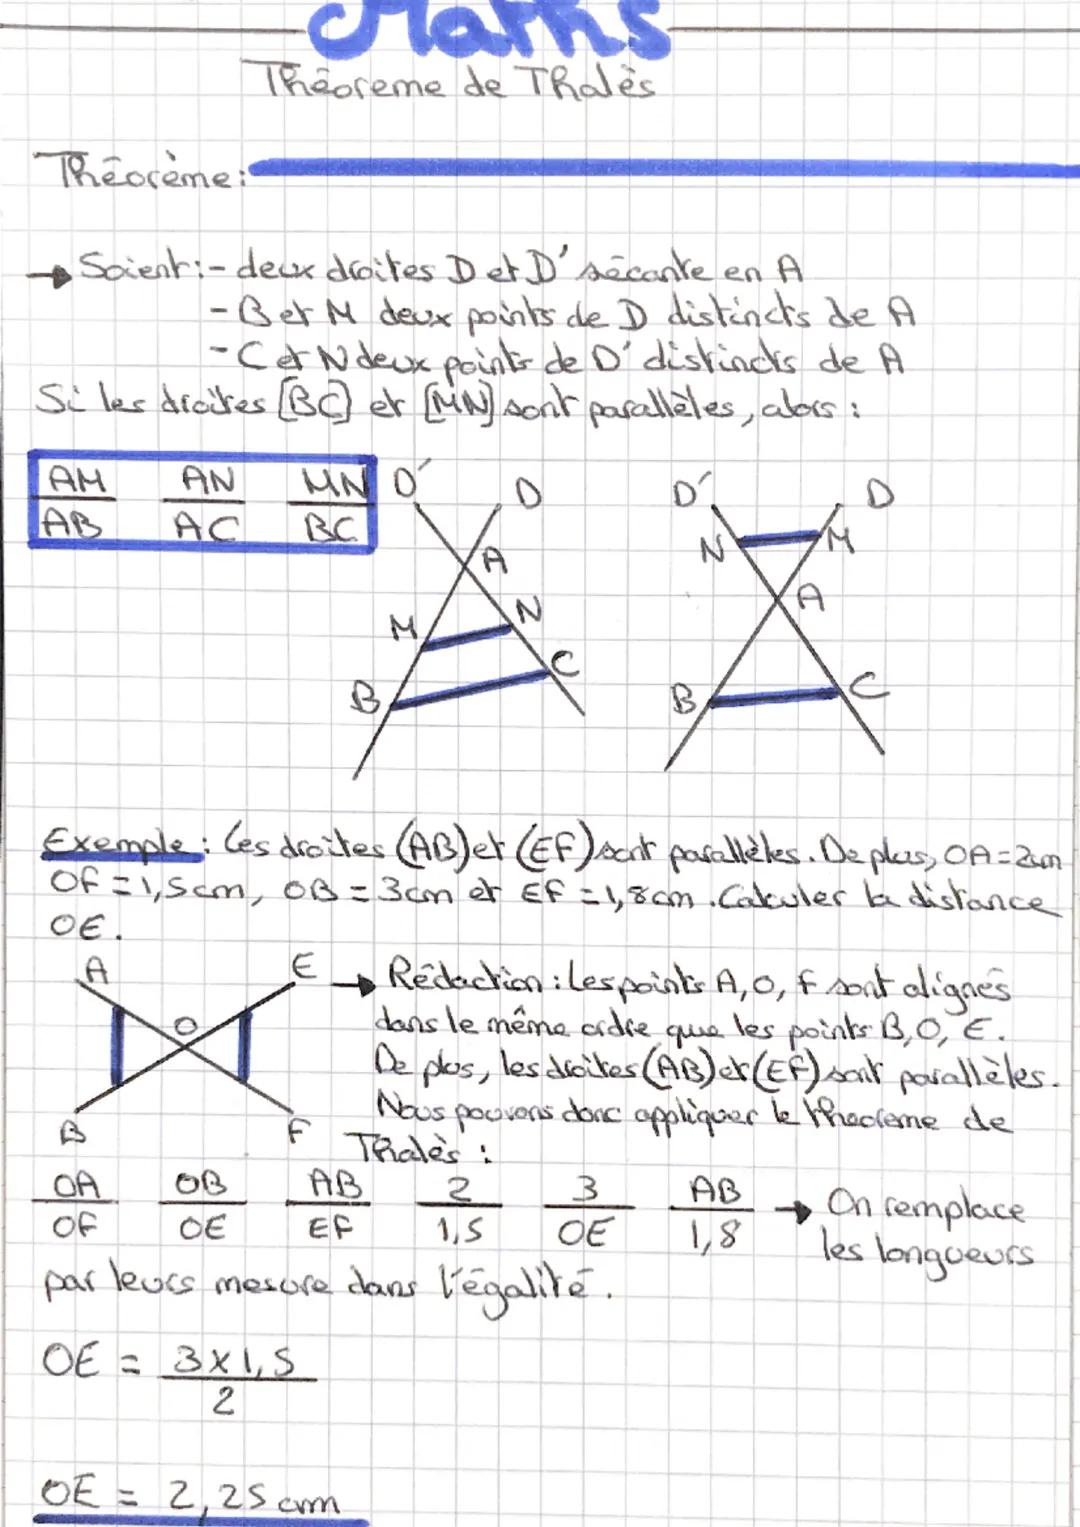 Maths
Théoreme de Thalès
Théorème:
→ Soient:- deux droites D et D' sécante en A
- B et M deux points de D distincts de A
- C et N deux points de D' distincts de A
Si les droites [BC] et [MN] sont parallèles, alors :
AM AN MN
AB AC BC
D' D
A
M N
B C
D' D
N M
A
B C
Exemple : Les droites (AB) et (EF) sont parallèles. De plus, OA = 2cm
OF = 1,5cm, OB = 3cm et EF = 1,8cm. Calculer la distance
OE.
A E
O
B F
→ Rédaction : Les points A, O, F sont alignés
dans le même ordre que les points B, O, E.
De plus, les droites (AB) et (EF) sont parallèles.
Nous pouvons donc appliquer le théoreme de
Thalès :
OA OB AB 2 3 AB
OF OE EF 1,5 OE 1,8
→ On remplace
les longueurs
par leurs mesure dans l'égalité.
OE = 3 x 1,5
2
OE = 2,25 cm